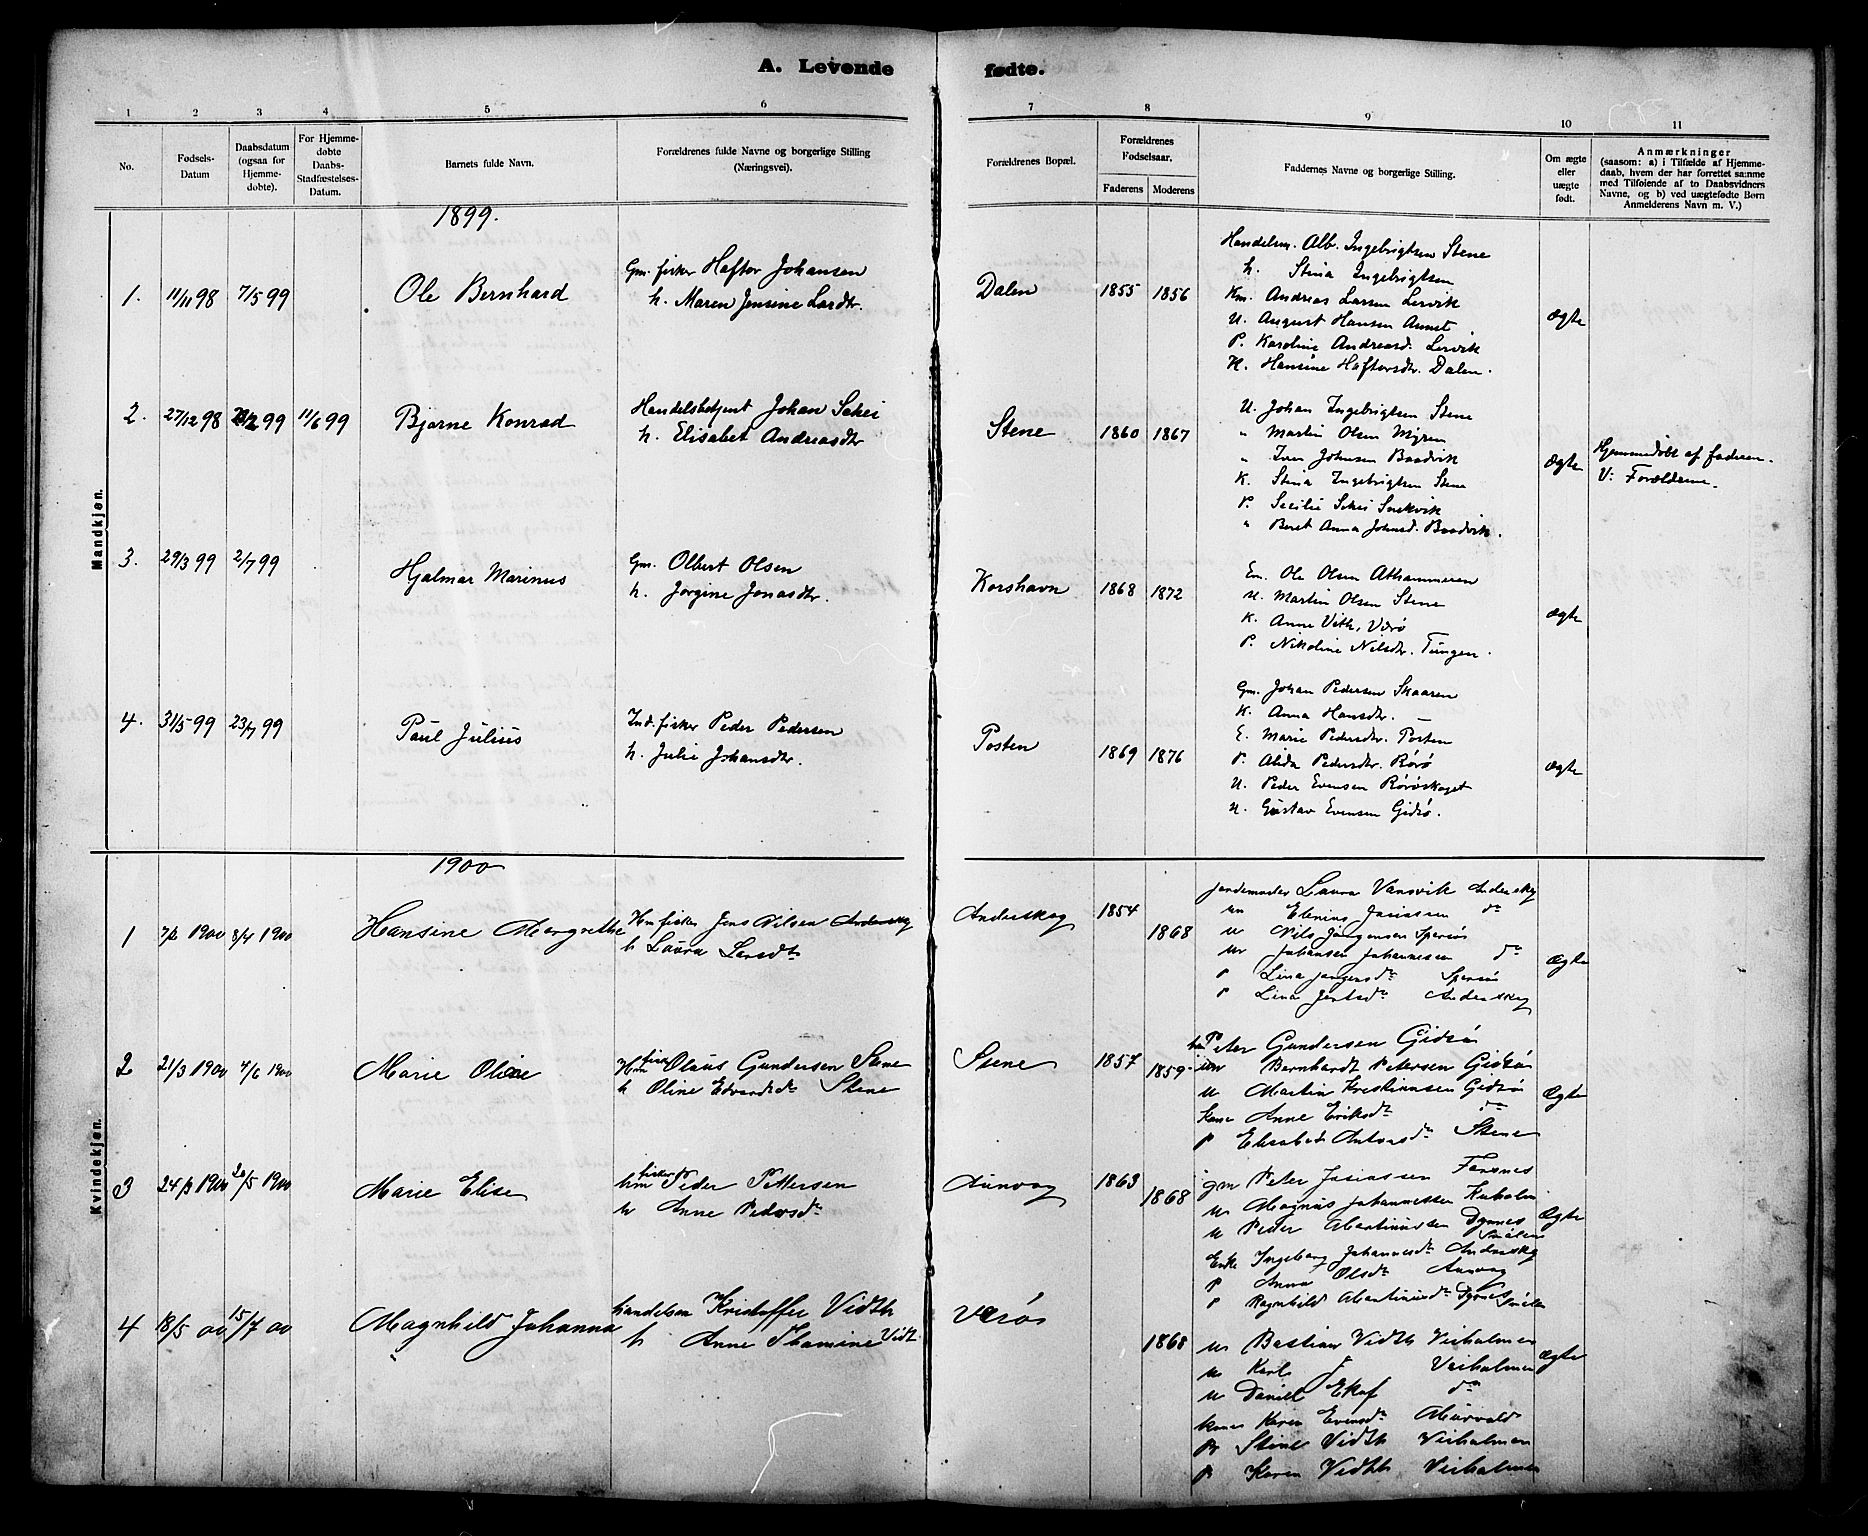 A. Levende fødte.
1 2 3 4 5 6 7 8 9 10 11
No.
Fødsels-
Datum
Daabsdatum
(ogsaa for
Hjemme-
døbte).
For Hjemme-
døbte
Daabs-
Stadfæstelses-
Datum.
Barnets fulde Navn.
Forældrenes fulde Navne og borgerlige Stilling
(Næringsvei).
Forældrenes Bopæl.
Forældrenes
Fødselsaar.
Faderens Moderens
Faddernes Navne og borgerlige Stilling.
Om ægte
eller
uægte
født.
Anmærkninger
(saasom: a) i Tilfælde af Hjemme-
daab, hvem der har forrettet samme
med Tilføiende af to Daabsvidners
Navne, og b) ved uægtefødte Børn
Anmelderens Navn m. V.)
Mandkjøn.
1899.
1. 11/11 98 7/5 99 Ole Bernhard
Gm. fisker Haftor Johansen
h. Maren Jensine Larsdtr.
Dalen 1855 1856
Handelsm. Alb. Ingebrigtsen Stene
h. Stina Ingebrigtsen
Km. Andreas Larsen Lervik
U. August Hansen Aunet
P. Karoline Andreasd. Lervik
K. Hansine Haftorsdtr. Dalen.
Ægte
2. 27/12 98 99 11/6 99 Bjarne Konrad
Handelsbetjent Johan Schei
h. Elisabet Andreasdtr
Stene 1860 1867
U. Johan Ingebrigtsen Stene
" Martin Olsen Myren
" Iver Johnsen Baadvik
K. Stina Ingebrigtsen Stene
P. Secilie Schei
" Beret Anna Johnsd. Baadvik.
Ægte
Hjemmedøbt af faderen.
V: Forældrene.
3. 29/3 99 2/7 99 Hjalmar Marinus
Gm. Olbert Olsen
h. Jørgine Jonasdtr.
Korshavn 1868 1872
Em. Ole Olsen
U. Martin Olsen Stene
K. Anne Vith, Værø
P. Nikoline Nilsdtr. Tungen.
Ægte
4. 31/5 99 23/7 99 Paul Julius
Ind. fisker Peder Pedersen
h. Julie Johansdtr.
Posten 1869 1876
Gm. Johan Pedersen Skaaren
K. Anna Hansdtr.
E. Marie Pedersdtr. Posten
P. Alida Pedersdtr. Rørø
U. Peder Evensen Rørøskaget
U. Gustav Evensen Gidsø.
Ægte
Kvindekjøn.
1900
1 7/2 1900 8/4 1900 Hansine Margrethe
Hm fisker Jens Nilsen Anderskog
h Laura Larsdt
Anderskog 1854 1868
Jordemoder Laura Vansvik Anderskog
Josiassen do
u Nils Jørgensen
Johansen Johannessen do
P Lina Jørgensdr
P Lina Jentsdr Anderskog
Ægte
2 21/3 1900 4/6 1900 Marie Oline
Hm fisker Olaus Gundersen Stene
h Oline Edvardsdr Stene
Stene 1857 1859
Peter Gundersen Gidsø
Bernhardt Petersen Gidsø
u Martin Kristiansen Gidsø
Kone Anne Eriksdr do
P Elisabet Antonsdr Stene
Ægte
3 24/3 1900 20/5 1900 Marie Elise
fisker
hm Peder Pettersen
h Anne Pedersdr
Aunvog 1863 1868
gm Peter Josiassen
u Magnus Johannessen Kuholm
u Peder Martinussen Dyrnes
Smølen
Enke Ingeborg Johannesdr Anderskog
P Anna Olsdr Aunvog
P Ragnhild Martinusdr Dyrnes Smølen
Ægte
4 18/5 00 15/7 00 Magnhild Johanna
handelsm Kristoffer Vidth
h Anne Thamine Vidt
Værøs 1868
u Bastian Vidth Veiholmen
u Karl " Veiholmen
u Daniel Ekof do
Kone Karen Evensdr
P Stine Vidth Veiholmen
P Karen Vidth Veiholmen
Ægte